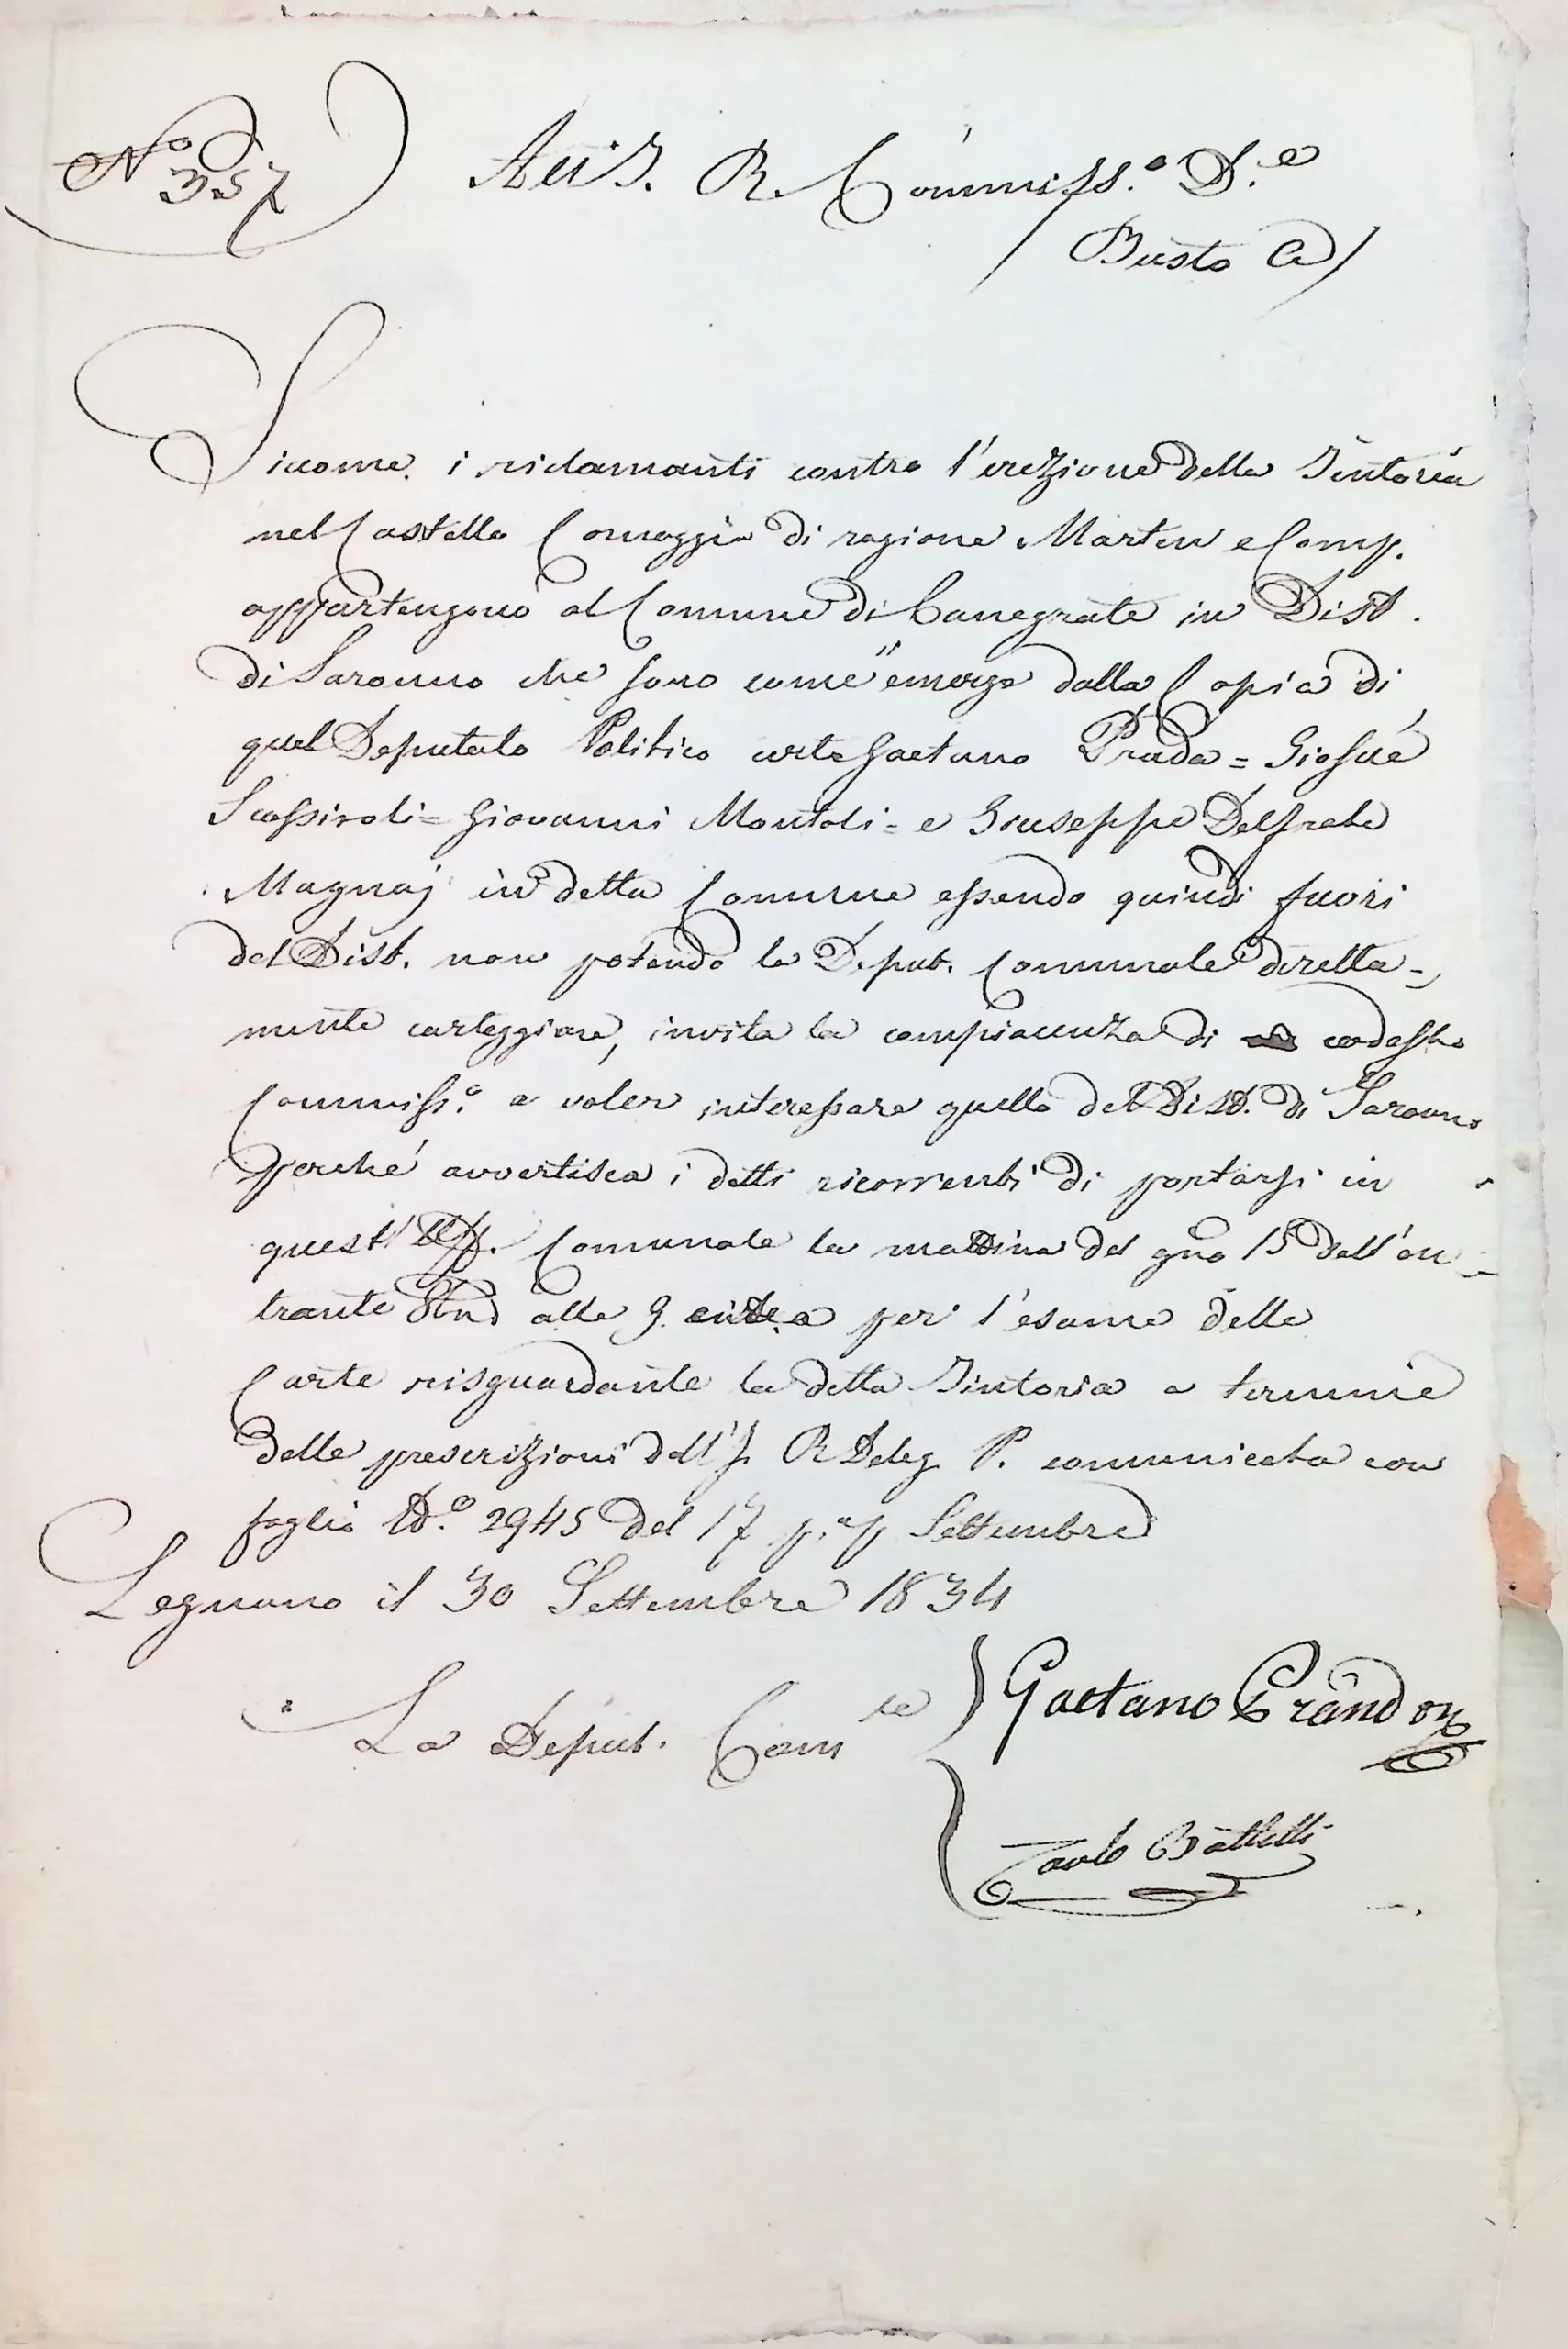 N.o 357
All'I. R. Commiss.o D.e
Busto A
Siccome i riclamanti contro l'erezione della Tintoria
nel Castello Cornaggia di ragione Martin e Comp.
appartengono al Comune di Canegrate in Dist.
di Saronno che sono come emerge dalla Copia di
quel Deputato Politico certo Gaetano Prada = Giosué
Scossiroli = Giovanni Montoli = e Giuseppe Delfrate
Magnaj in detta Comune essendo quindi fuori
del Dist. non potendo la Deput. Comunale diretta-
mente carteggiare, invita la compiacenza di codesto
Commiss.o a voler interessare quello del Dist. di Saronno
perché avvertisca i detti ricorrenti di portarsi in
quest'Uff. Comunale la mattina del gno 15 dell'en-
trante alle 9 per l'esame delle
Carte risguardante la detta Tintoria a termine
delle prescrizioni dell'I. R Deleg. P. comunicata con
foglio N.o 2945 del 17 Settembre
Legnano il 30 Settembre 1834
La Deput. Com le
Gaetano Grandon
Paolo Battelli